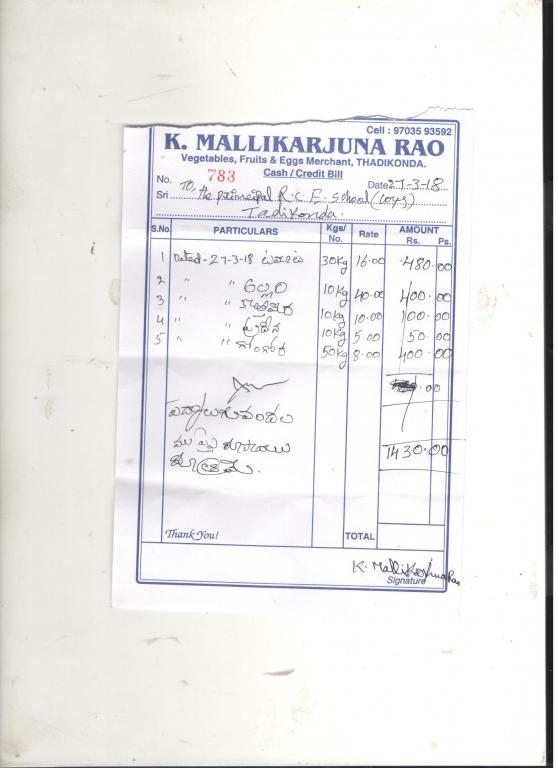 Cell : 97035 93592
K. MALLIKARJUNA RAO
Vegetables, Fruits & Eggs Merchant, THADIKONDA.
Cash / Credit Bill
No. 783 Date 27-3-18
Sri To, the principal R.C.E. School (Boys)
Tadikonda.
S.No. PARTICULARS Kgs/ No. Rate AMOUNT Rs. Ps.
1 Dated - 27-3-18 టమాట 30kg 16.00 480.00
2 " " అల్లం 10kg 40.00 400.00
3 " " కొత్తిమీర 10kg 10.00 100.00
4 " " పుదీన 10kg 5.00 50.00
5 " " గోంగూర 50kg 8.00 400.00
.00
ముప్పై రూపాయలు 1430.00
మాత్రమే.
Thank You! TOTAL
K. Mallikarjuna Rao
Signature